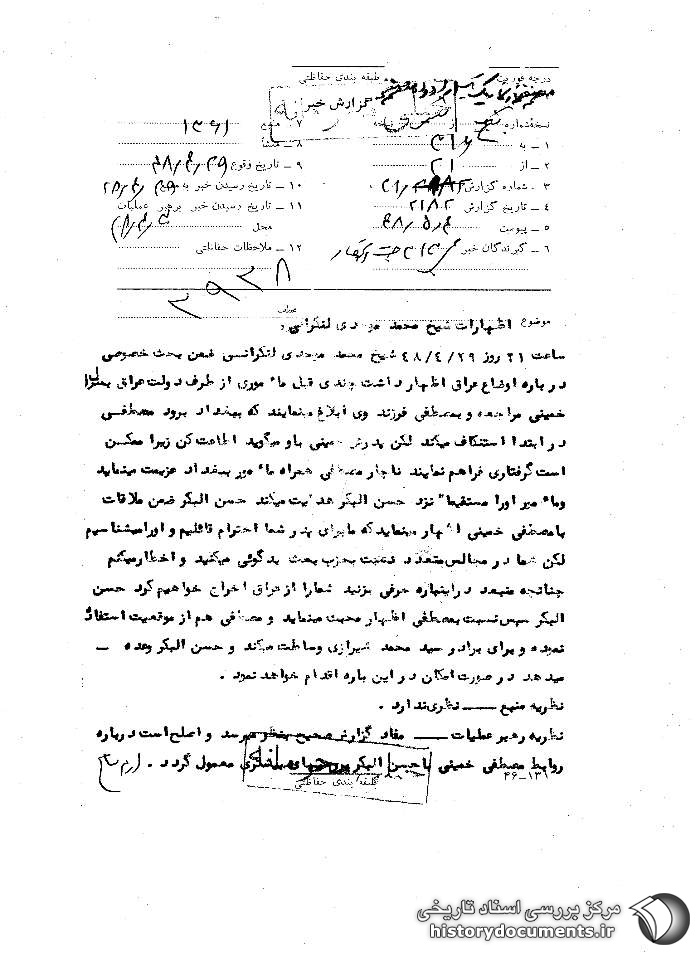 درجه فوریت
طبقه بندی حفاظتی
گزارش خبر
نسخه‌شماره از نسخه
۷ ـ منبع ۱۳۶۱
۱ ـ به ۳۱۶
۸ ـ منشأ
۲ ـ از ۲۱
۹ ـ تاریخ وقوع ۴۸/۴/۲۹
۳ ـ شماره گزارش
۱۰ ـ تاریخ رسیدن خبر به منبع
۴ ـ تاریخ گزارش
۱۱ ـ تاریخ رسیدن خبر برهبر عملیات
۵ ـ پیوست
محل
۶ ـ گیرندگان خبر
۱۲ ـ ملاحظات حفاظتی
۳۹۳۸
موضوع اظهارات شیخ محمد موحدی لنکرانی
ساعت ۲۱ روز ۴۸/۴/۲۹ شیخ محمد موحدی لنکرانی ضمن بحث خصوصی
درباره اوضاع عراق اظهار داشت چندی قبل ماءموری از طرف دولت عراق بمنزل
خمینی مراجعه و بمصطفی فرزند وی ابلاغ مینمایند که ببغداد برود مصطفی
در ابتدا استنکاف میکند لکن پدرش خمینی باو میگوید اطاعت کن زیرا ممکن
است گرفتاری فراهم نمایند ناچار مصطفی همراه ماءمور ببغداد عزیمت مینماید
وماءمور اورا مستقیما" نزد حسن البکر هدایت میکند حسن البکر ضمن ملاقات
بامصطفی خمینی اظهار مینماید که مابرای پدر شما احترام قائلیم و اورامیشناسیم
لکن شما در مجالس متعدد نسبت بحزب بعث بدگوئی میکنید و اخطارمیکنم
چنانچه منبعد دراینباره حرفی بزنید شمارا از عراق اخراج خواهیم کرد حسن
البکر سپس نسبت بمصطفی اظهار محبت مینماید و مصطفی هم از موقعیت استفاده
نموده و برای برادر سید محمد شیرازی وساطت میکند و حسن البکر وعده ـ
میدهد در صورت امکان در این باره اقدام خواهد نمود .
نظریه منبع ـــ نظری ندارد .
نظریه رهبر عملیات ـــ مفاد گزارش صحیح بنظر میرسد و اصلح است درباره
روابط مصطفی خمینی باحسن البکر معمول گردد .
طبقه بندی حفاظتی
۴۶-۱۳۱
مرکز بررسی اسناد تاریخی
historydocuments.ir